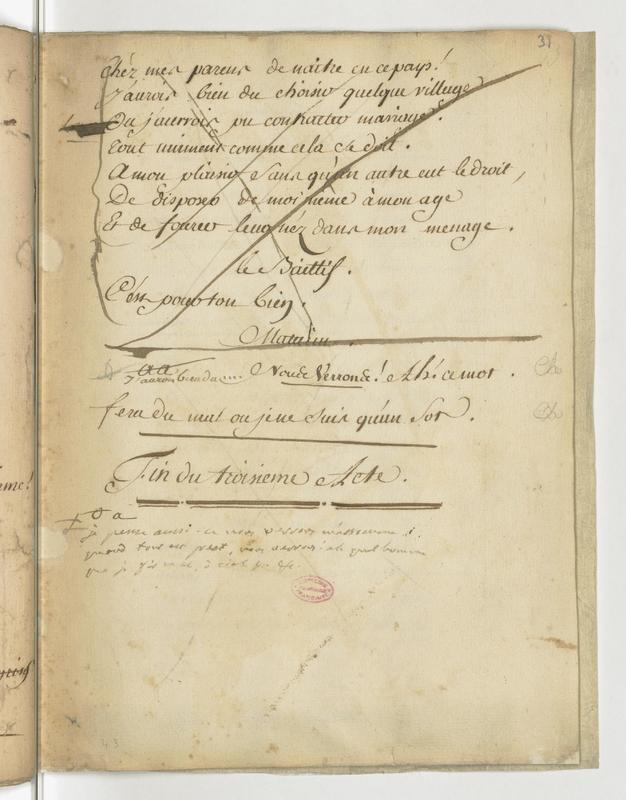 31
Chéz mes parens de naitre en ce pays!
J'aurois bien du choisir quelque village
Ou j'aurrois pu contracter mariage.
Tout uniment comme cela se doit.
A mon plaisir sans qu'un autre eut le droit,
De disposer de moi même à mon age
Et de fourer le nez dans mon menage.
le Baillif.
C'est pour ton bien.
Mathurin.
J'aurois bien du.... Nous Verrons! Ah! ce mot.
fera du mal ou je ne suis qu'un Sot.
Fin du troisieme Acte.
je pense aussi ce nous verrons
quand tout est prest, nous verrons
que je